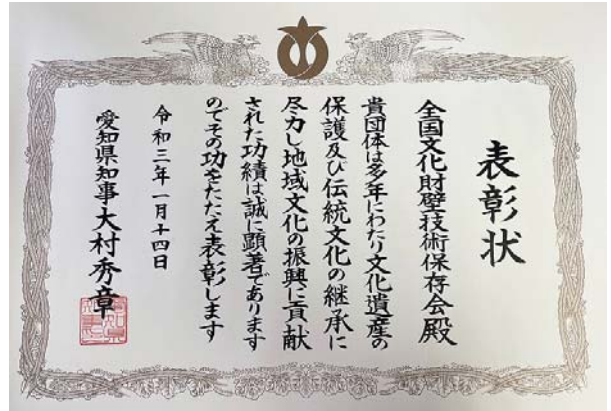 表彰状
全国文化財壁技術保存会殿
貴団体は多年にわたり文化遺産の
保護及び伝統文化の継承に
尽力し地域文化の振興に貢献
された功績は誠に顕著であります
のでその功をたたえ表彰します
令和三年一月十四日
愛知県知事大村秀章